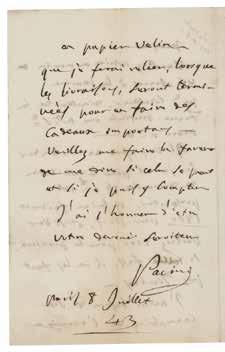 en papier velin
que je ferai relier, lorsque
les livraisons, seront termi-
nées pour en faire des
cadeaux importans —
Veuillez me faire la faveur
de me dire si cela se peut
et si je puis y compter
J'ai l'honneur d'etre
votre devoué serviteur
Paris 8 Juillet
43